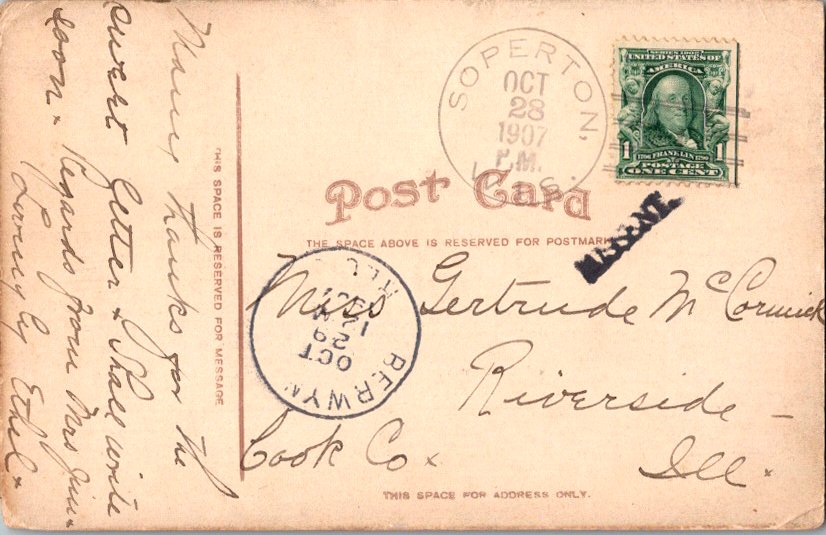 Many thanks for the
sweet letter & shall write
soon. Regards from Mrs Jim.
Lovingly Ethel.
THIS SPACE IS RESERVED FOR MESSAGE
SOPERTON,
OCT
28
1907
P.M.
SERIES 1902
UNITED STATES OF
AMERICA
1 1
1706 FRANKLIN 1790
POSTAGE
ONE CENT
Post Card
THE SPACE ABOVE IS RESERVED FOR POSTMARK
Miss Gertrude McCormick
Riverside
Cook Co. Ill.
BERWYN
OCT
29
THIS SPACE FOR ADDRESS ONLY.